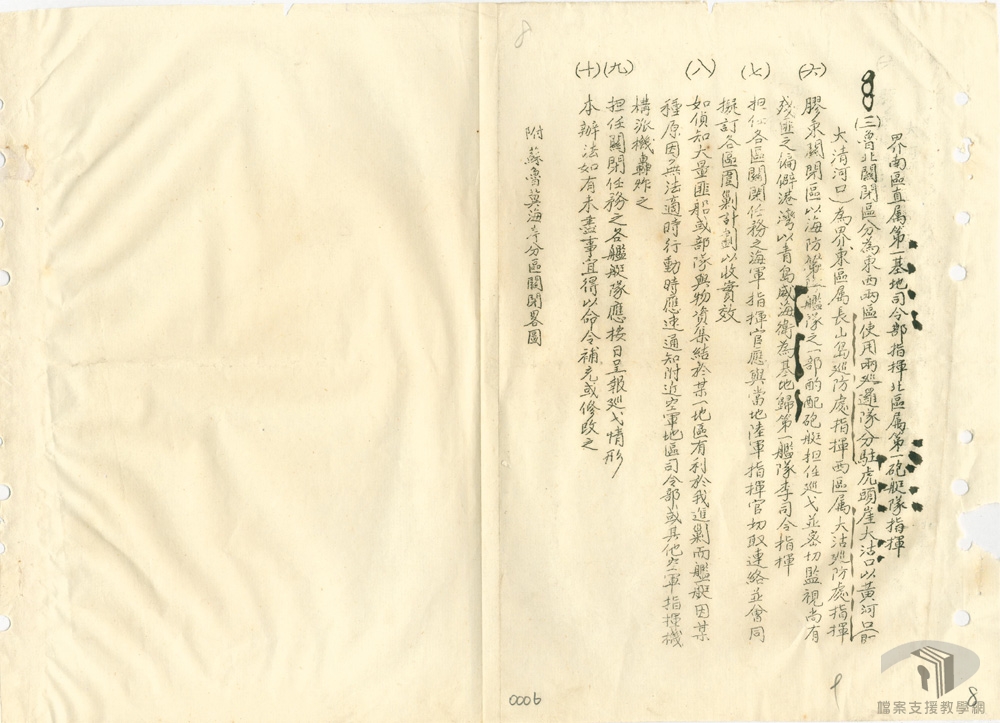 8
界南區直属第一基地司令部指揮北區属第一砲艇隊指揮
(三)魯北關閉區分為東西兩區使用兩巡邏隊分駐虎頭崖大沽口以黃河口(前
大清河口)為界東區属長山島巡防處指揮西區属大沽巡防處指揮
(六)膠東關閉區以海防第一艦隊之一部酌配砲艇担任巡弋並密切監視尚有
殘匪之偏僻港灣以青島威海衛為基地歸第一艦隊李司令指揮
(七)担任各區關閉任務之海軍指揮官應與當地陸軍指揮官切取連絡並會同
擬訂各區圍剿計劃以收實效
(八)如偵知大量匪船或部隊與物資集結於某一地區有利於我進剿而艦艇因某
種原因無法適時行動時應速通知附近空軍地區司令部或其他空軍指揮機
構派機轟炸之
(九)担任關閉任務之各艦艇隊應按日呈報巡弋情形
(十)本辦法如有未盡事宜得以命令補充或修改之
附 蘇魯冀海岸分區關閉畧圖
0006
8
檔案支援教學網